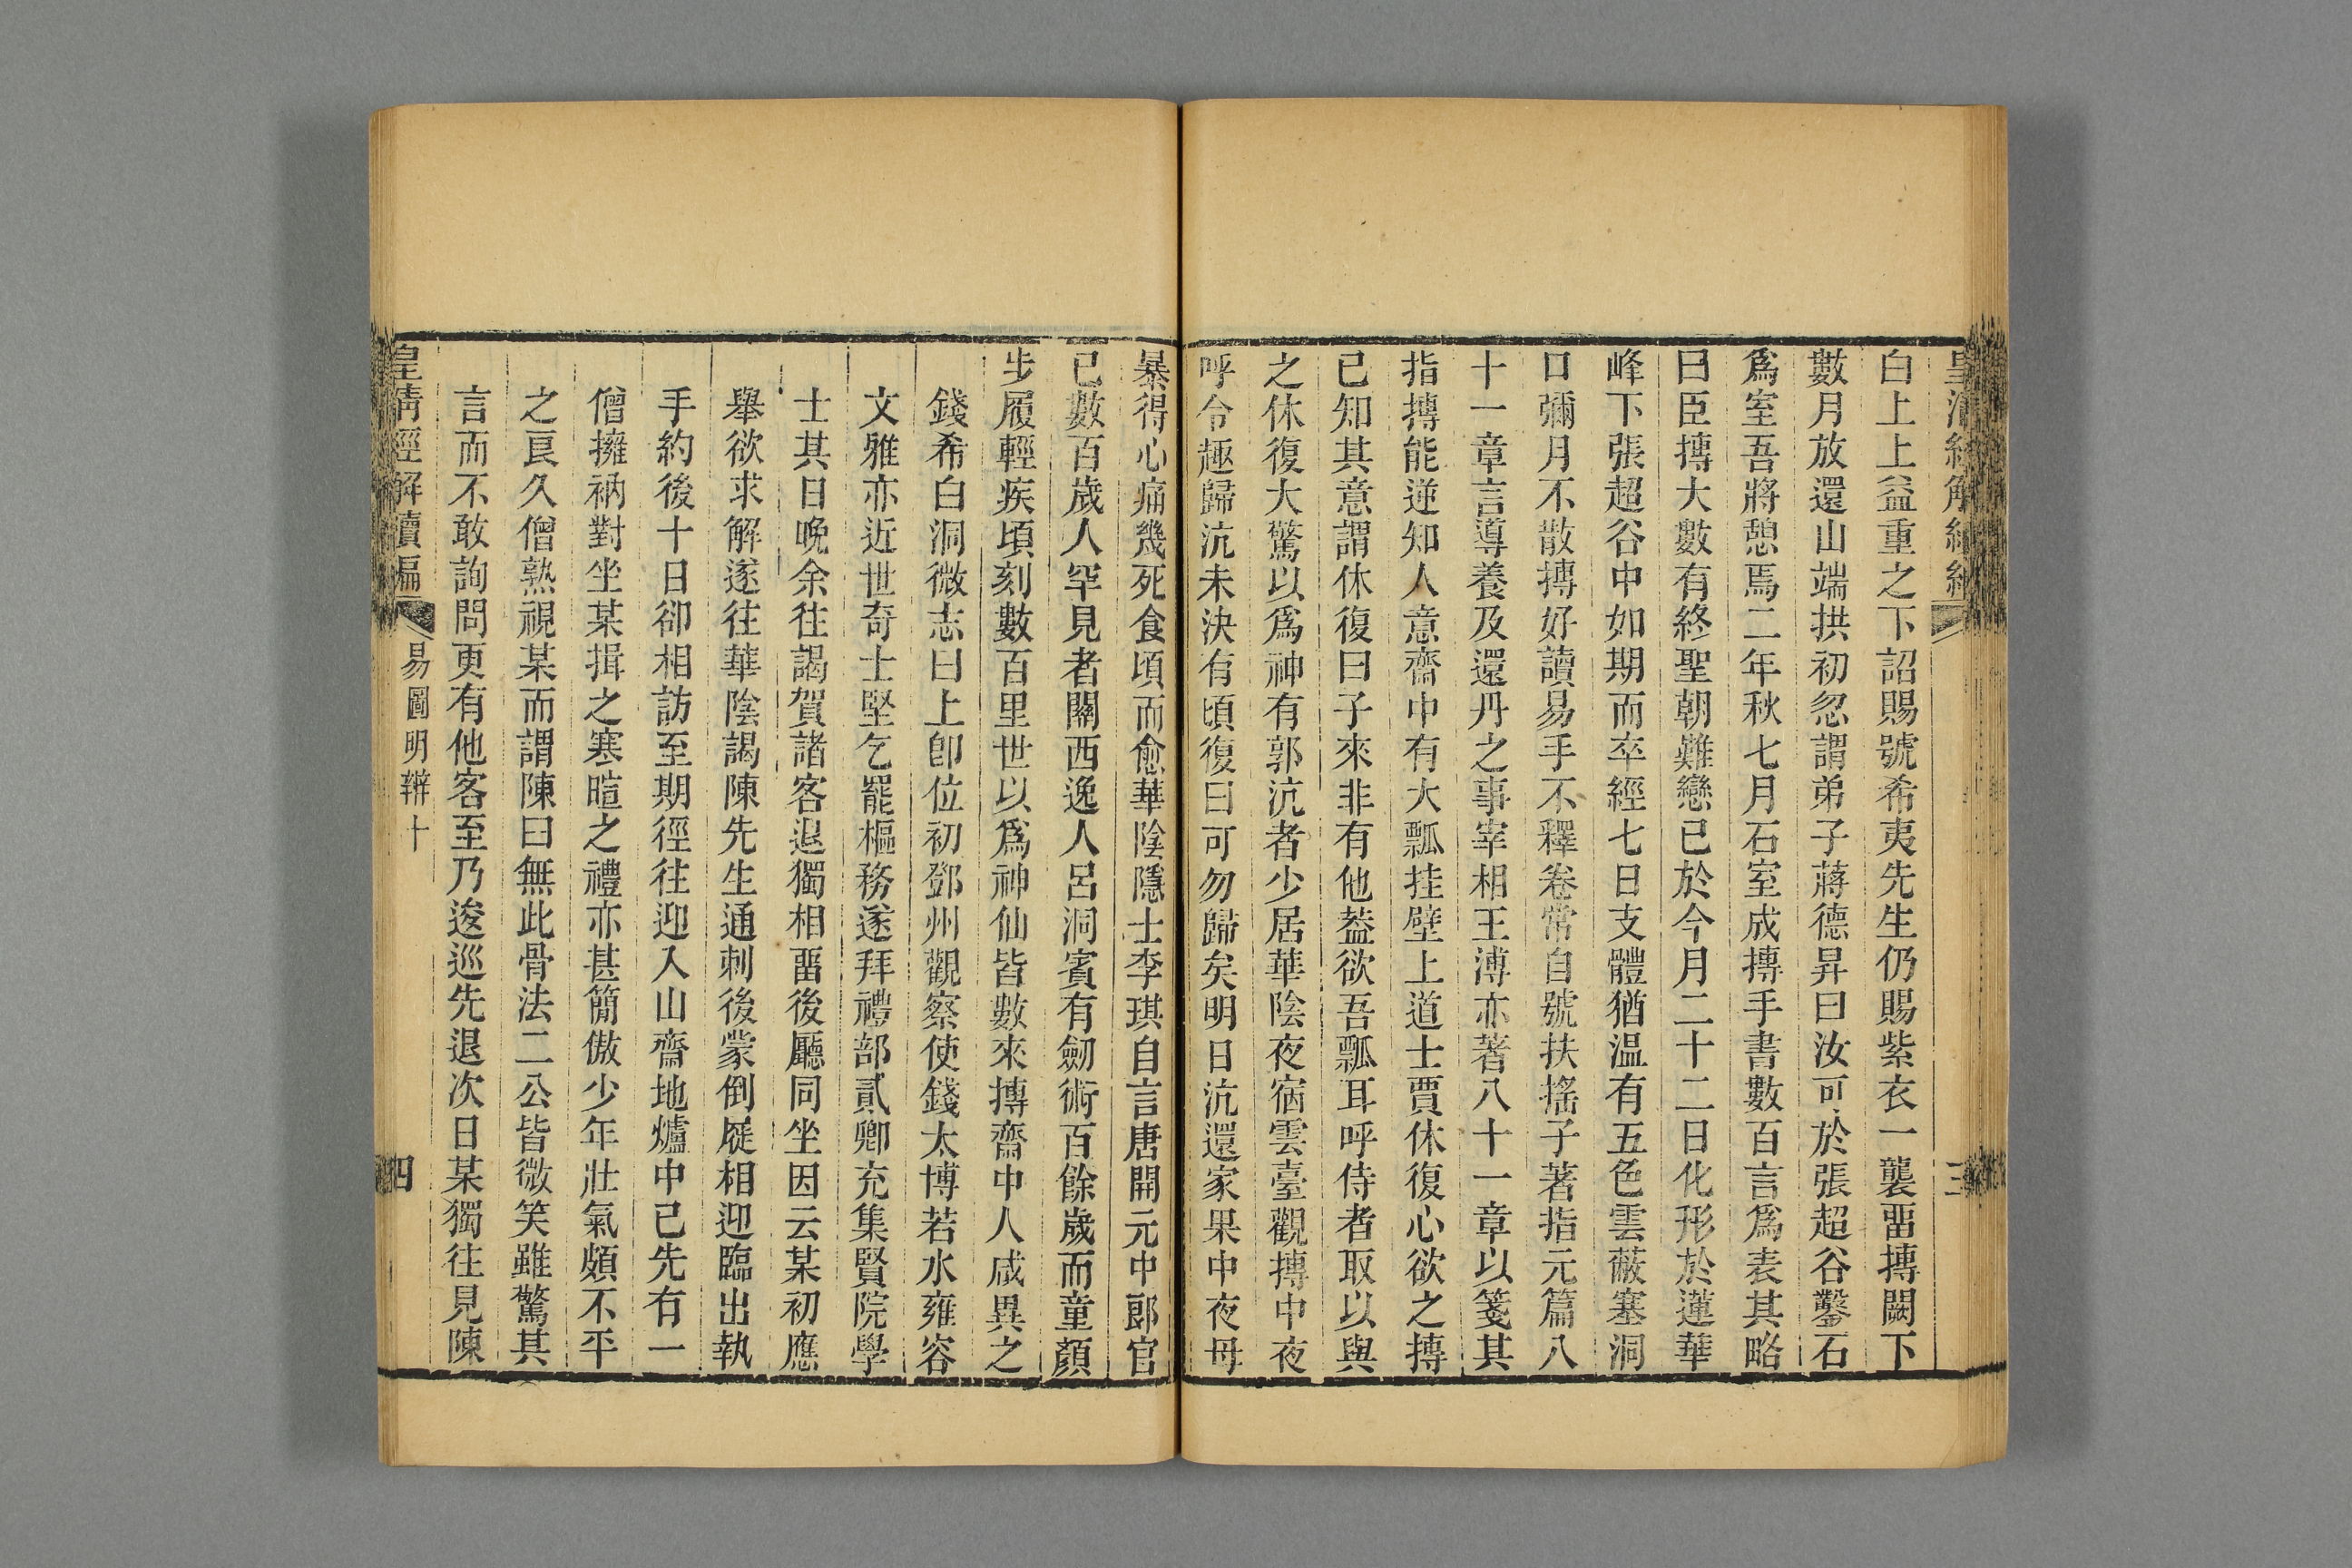 白上上益重之下詔賜號希夷先生仍賜紫衣一襲畱摶闕下
數月放還山端拱初忽謂弟子蔣德昇曰汝可於張超谷鑿石
爲室吾將憩焉二年秋七月石室成摶手書數百言爲表其略
曰臣摶大數有終聖朝難戀已於今月二十二日化形於蓮華
峰下張超谷中如期而卒經七日支體猶温有五色雲蔽塞洞
口彌月不散摶好讀易手不釋卷常自號扶搖子著指元篇八
十一章言導養及還丹之事宰相王溥亦著八十一章以箋其
指摶能逆知人意齋中有大瓢挂壁上道士賈休復心欲之摶
已知其意謂休復曰子來非有他葢欲吾瓢耳呼侍者取以與
之休復大驚以爲神有郭沆者少居華陰夜宿雲臺觀摶中夜
呼令趣歸沆未決有頃復曰可勿歸矣明日沆還家果中夜母
暴得心痛幾死食頃而愈華陰隱士李琪自言唐開元中郎官
已數百歲人罕見者關西逸人呂洞賓有劒術百餘歲而童顏
步履輕疾頃刻數百里世以爲神仙皆數來摶齋中人咸異之
錢希白洞微志曰上卽位初鄧州觀察使錢太博若水雍容
文雅亦近世奇士堅乞罷樞務遂拜禮部貳卿充集賢院學
士其日晚余往謁賀諸客退獨相畱後廳同坐因云某初應
舉欲求解遂往華陰謁陳先生通刺後蒙倒屣相迎臨出執
手約後十日卻相訪至期徑往迎入山齋地爐中已先有一
僧擁衲對坐某揖之寒暄之禮亦甚簡傲少年壯氣頗不平
之良久僧熟視某而謂陳曰無此骨法二公皆微笑雖驚其
言而不敢詢問更有他客至乃逡巡先退次日某獨往見陳
皇清經解續編
易圖明辨十
四